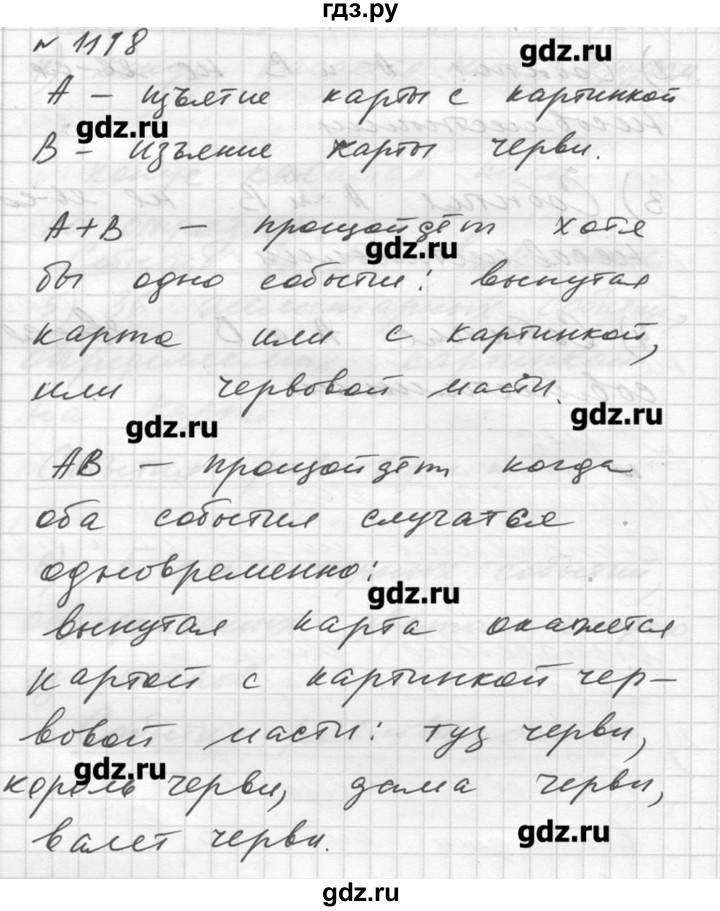 гдз.ру
№ 1198
gdz.ru
А – изъятие карты с картинкой
gdz.ru
В – изъяние карты черви.
А+В – произойдёт хотя
gdz.ru
бы одно событие: вынутая
карта или с картинкой,
или червовой масти.
gdz.ru
gdz.ru
АВ – произойдёт когда
оба события случаться
одновременно:
gdz.ru
вынутая карта окажется
картой с картинкой чер-
вовой масти: туз черви,
gdz.ru
король черви, дама черви,
валет черви.
gdz.ru
gdz.ru